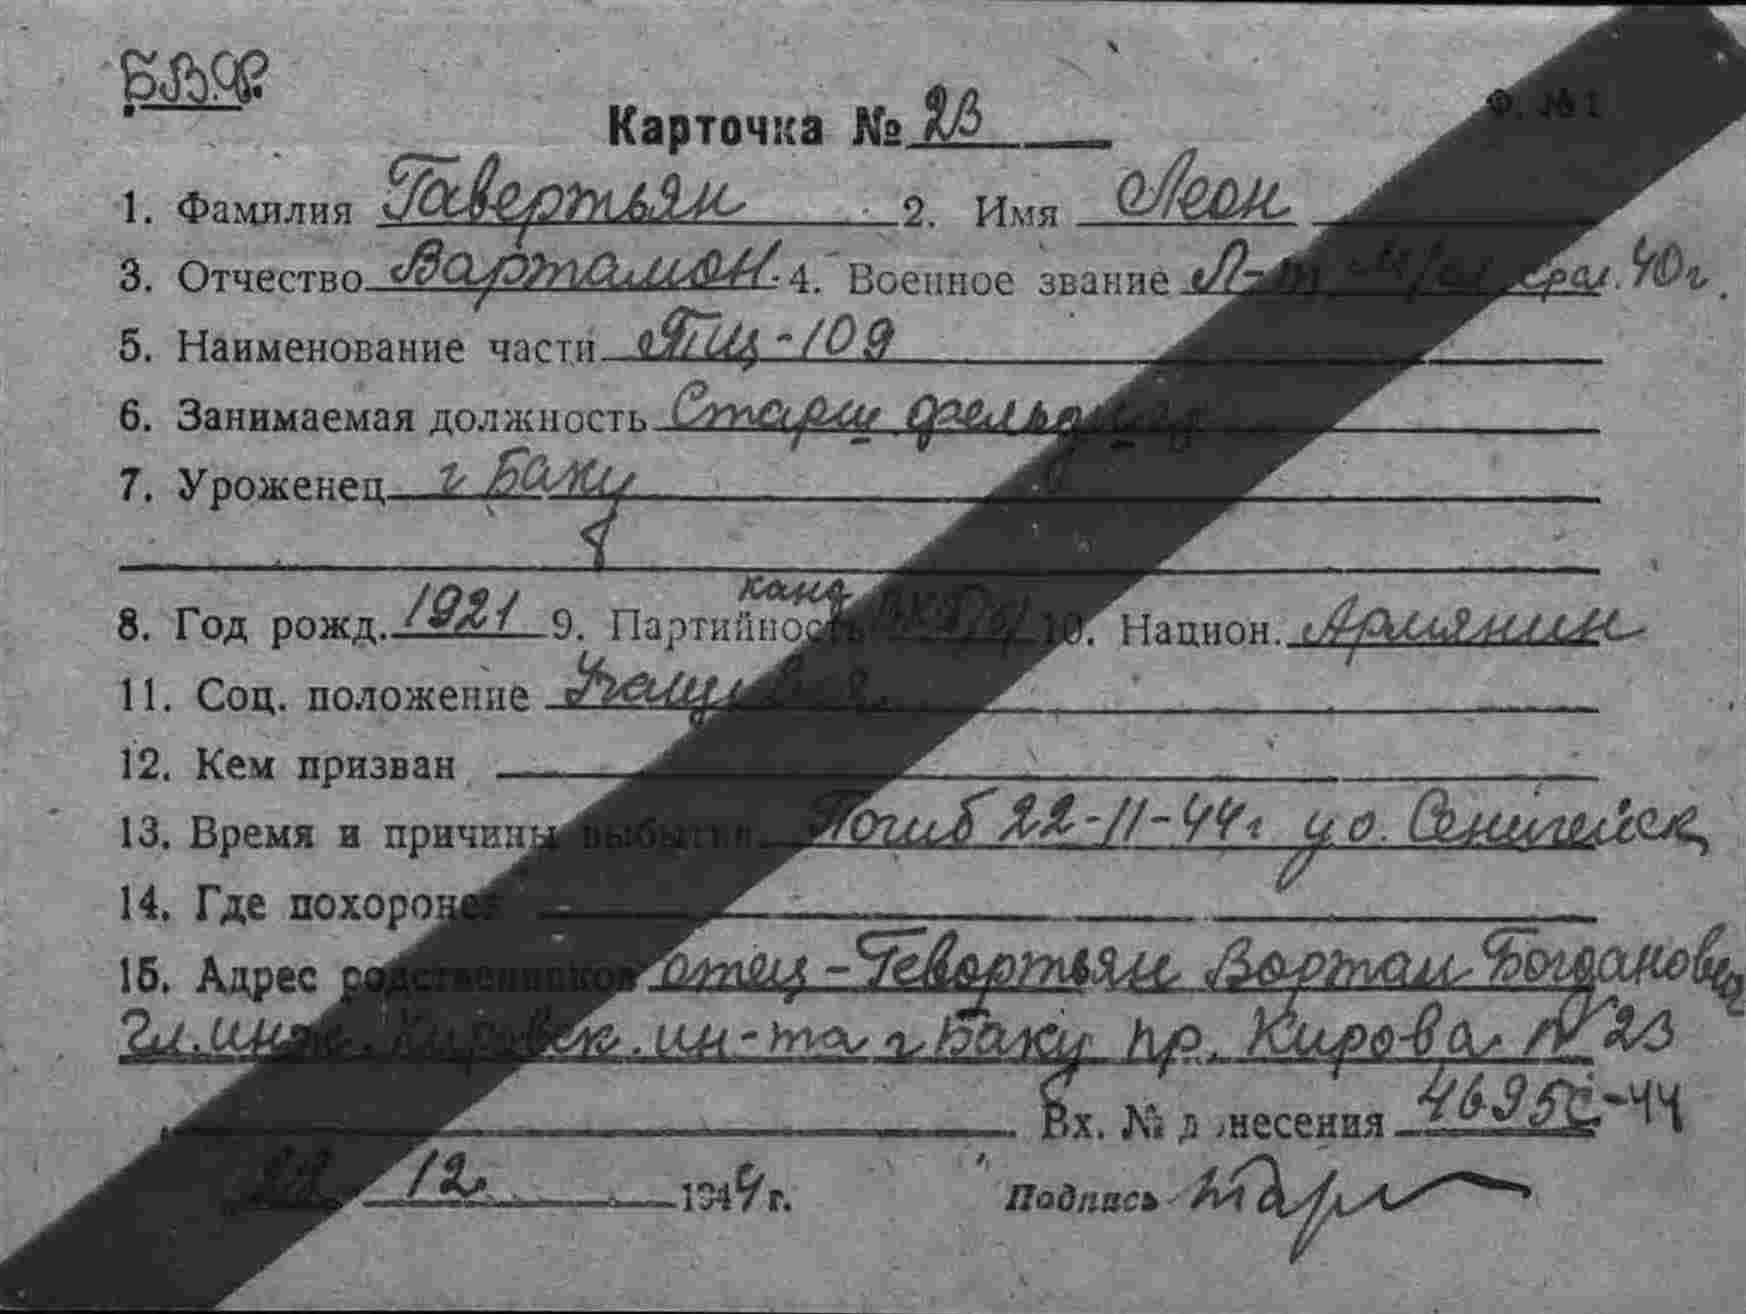 Б.В.Ф.
Карточка № 23
Ф. № 1
1. Фамилия Гавертьян 2. Имя Леон
3. Отчество Вартамон. 4. Военное звание Л-т м/сл 40г.
5. Наименование части ТЩ-109
6. Занимаемая должность Старш фельдшер
7. Уроженец г Баку
8
8. Год рожд. 1921 9. Партийность канд ВКП/б/ 10. Национ. Армянин
11. Соц. положение
12. Кем призван
13. Время и причины выбытия Погиб 22-11-44г у о.
14. Где похоронен
15. Адрес родственников отец-Гевортьян Вортан Богданович
Гл. инж. Кировск. ин-та г Баку пр. Кирова N 23
Вх. № донесения 4695с-44
22 12. 1944 г. Подпись